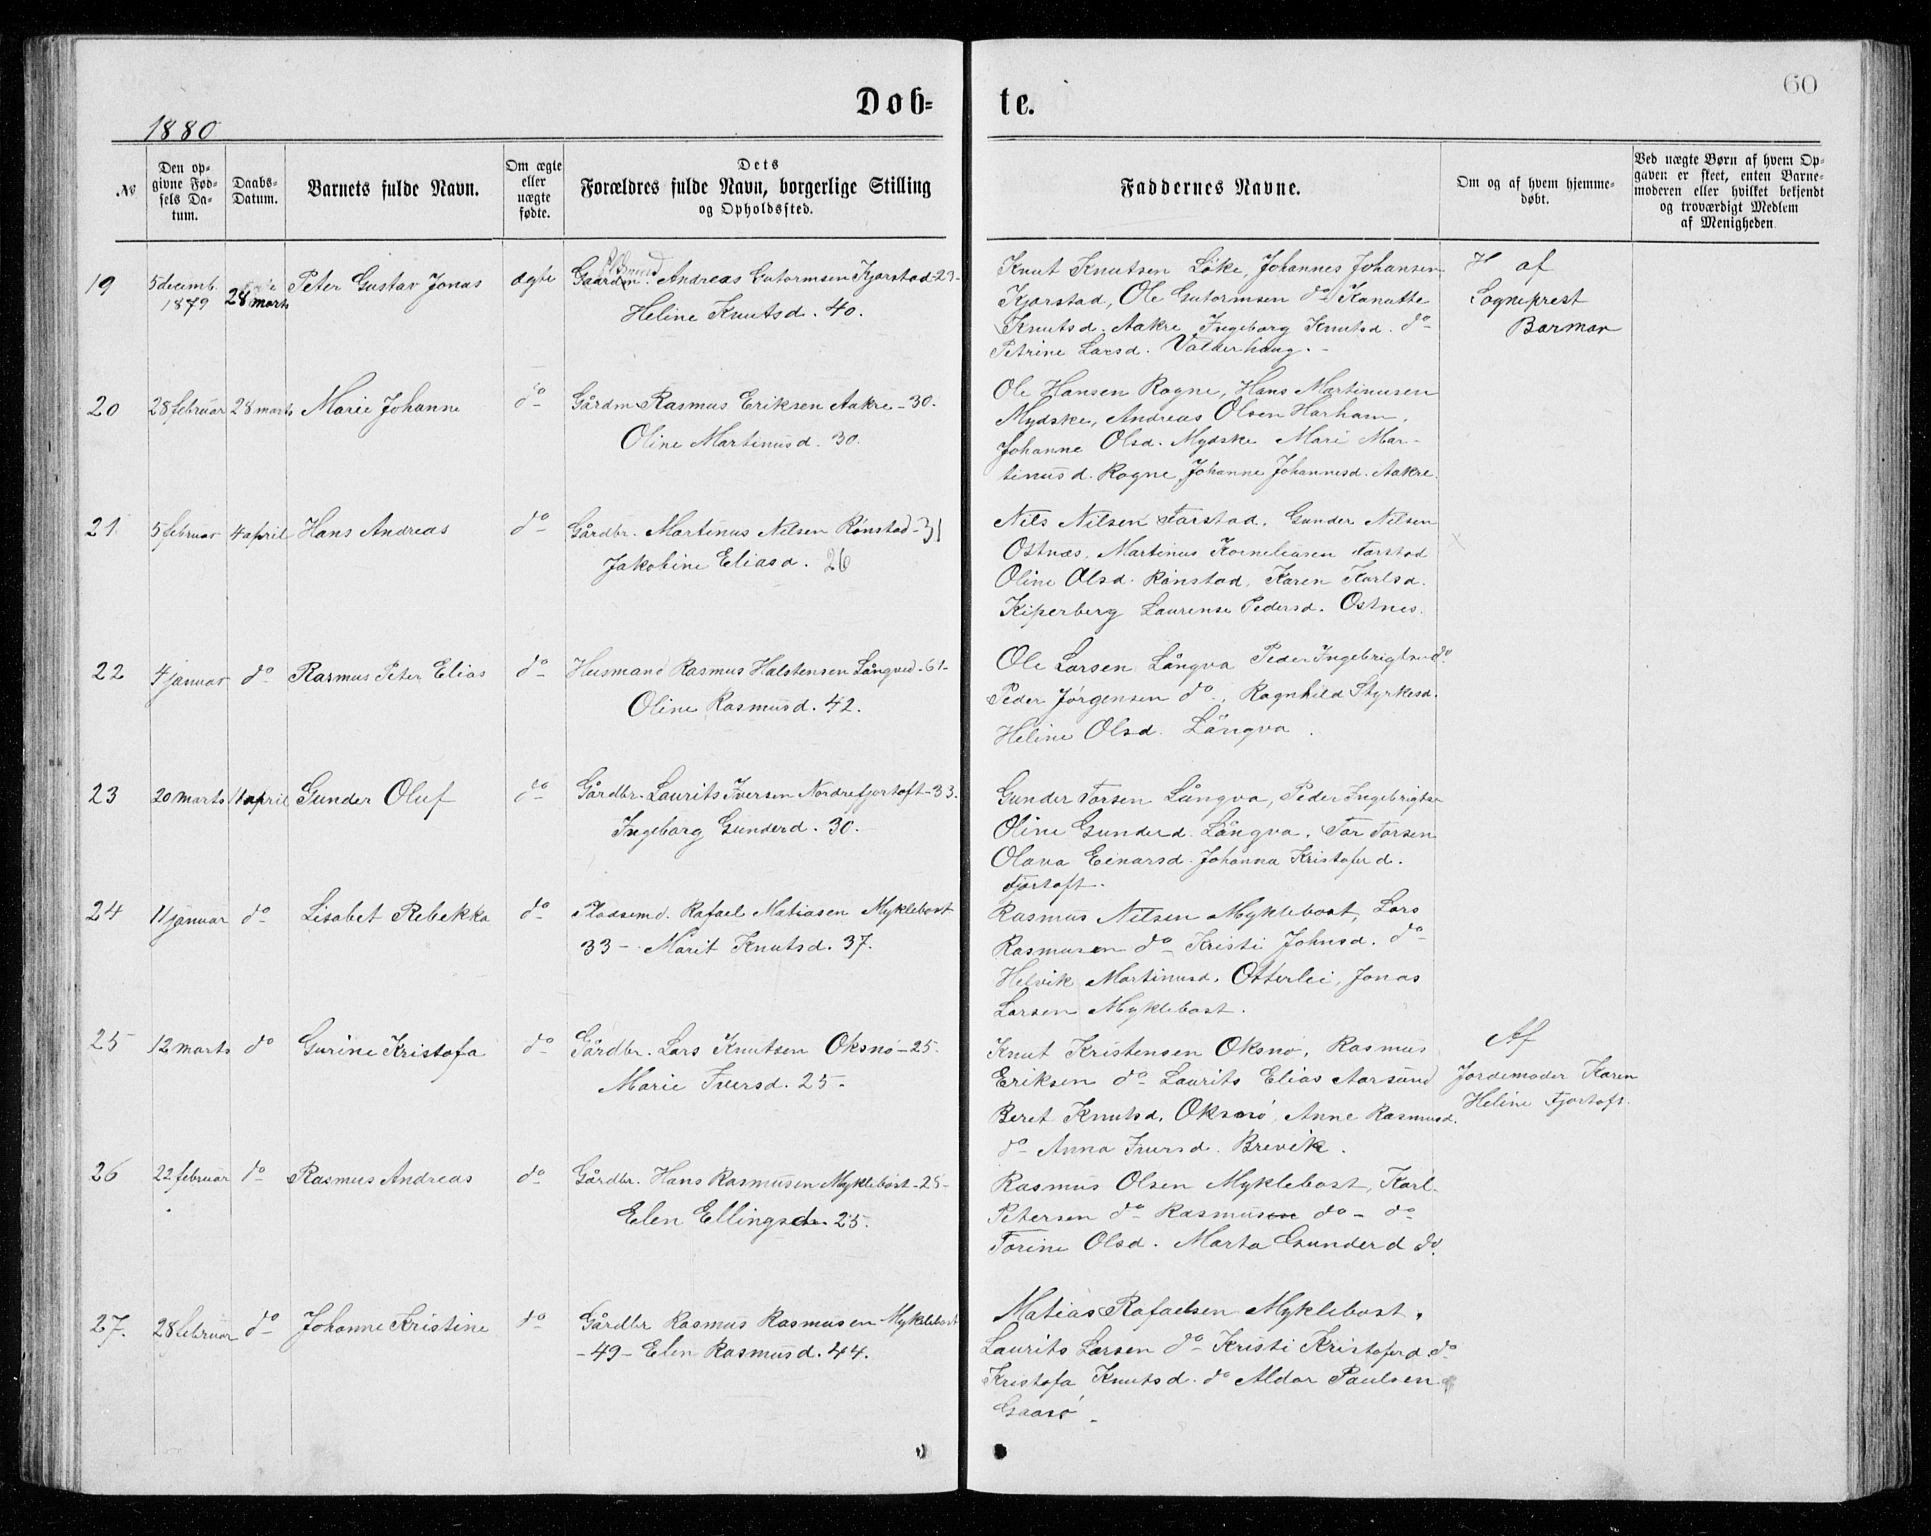 60
Døb- te.
1880
№
Den opgivne Fødsels Datum.
Daabs-Datum.
Barnets fulde Navn.
Om ægte eller uægte fødte.
Dets Forældres fulde Navn, borgerlige Stilling og Opholdssted.
Faddernes Navne.
Om og af hvem hjemmedøbt.
Ved uægte Børn af hvem Opgaven er skeet, enten Barnemoderen eller hvilket bekjendt og troværdigt Medlem af Menigheden.
19 5 decemb. 1879 28 marts Peter Gustav Jonas ægte
Gaardm. Andreas Gutormsen Kjærstad - 29 -
Heline Knutsd. 40.
Knut Knutsen Løke, Johannes Johansen
Kjærstad, Ole Gutormsen do Kanutte
Knutsd. Aakre Ingeborg Knutsd. do
Petrine Larsd. Valderhaug.
H af
Sogneprest
Barman
20 28 februar 28 marts Marie Johanne do
Gårdm Rasmus Eriksen Aakre - 30.
Oline Martinusd. 30.
Ole Hansen Rogne, Hans Martinusen
Mydske, Andreas Olsen Harham,
Johanne Olsd. Mydske Mari Mar-
tinusd. Rogne, Johanne Johannesd. Aakre.
21 5 februar 4 april Hans Andreas do
Gårdbr. Martinus Nilsen Rønstad - 31
Jakobine Eliasd. 26
Nils Nilsen Farstad, Gunder Nilsen
Ostnæs, Martinus Korneliusen Farstad
Oline Olsd. Rønstad, Karen Karlsd.
Kiperberg Laurense Pedersd. Ostnes.
22 4 januar do Rasmus Peter Elias do
Husmand Rasmus Halstensen Långved - 61 -
Oline Rasmusd. 42.
Ole Larsen Långva Peder Ingebrigtsen do
Peder Jørgensen do, Ragnhild Styrkesd.
Heline Olsd. Långva.
23 20 marts 11 april Gunder Oluf do
Gårdbr. Laurits Iversen Nordrefjørtoft - 33.
Ingeborg Gunderd. 30.
Gunder Torsen Långva, Peder Ingebrigts
Oline Gunderd. Långva, Tor Torsen
Olava Einarsd. Johanna Kristoferd.
Fjørtoft.
24 11 januar do Lisabet Rebekka do
Pladsemd. Rafael Matiasen Myklebost
33 - Marit Knutsd. 37.
Rasmus Nilsen Myklebost, Lars
Rasmusen do Kristi Johnsd. do
Helvik Martinusd. Otterlei, Jonas
Larsen Myklebost.
25 12 marts do Gurine Kristofa do
Gårdbr. Lars Knutsen Oksnø - 25.
Marie Iversd. 25 -
Knut Kristensen Oksnø, Rasmus
Eriksen do Laurits Elias Aarsund
Beret Knutsd. Oksnø, Anne Rasmusd.
do Anna Iversd. Brevik.
Af
Jordemoder Karen
Heline Fjørtoft.
26 22 februar do Rasmus Andreas do
Gårdbr. Hans Rasmusen Myklebost - 25 -
Elen Ellingsd. 25.
Rasmus Olsen Myklebost, Karl
Petersen do Rasmus do - do
Torine Olsd. Marta Gunderd do.
27. 28 februar do Johanne Kristine do
Gårdbr Rasmus Rasmusen Myklebost
- 49 - Elen Rasmusd. 44.
Matias Rafaelsen Myklebost,
Laurits Larsen do Kristi Kristoferd. do
Kristofa Knutsd. do Aldor Paulsen
Gaasø